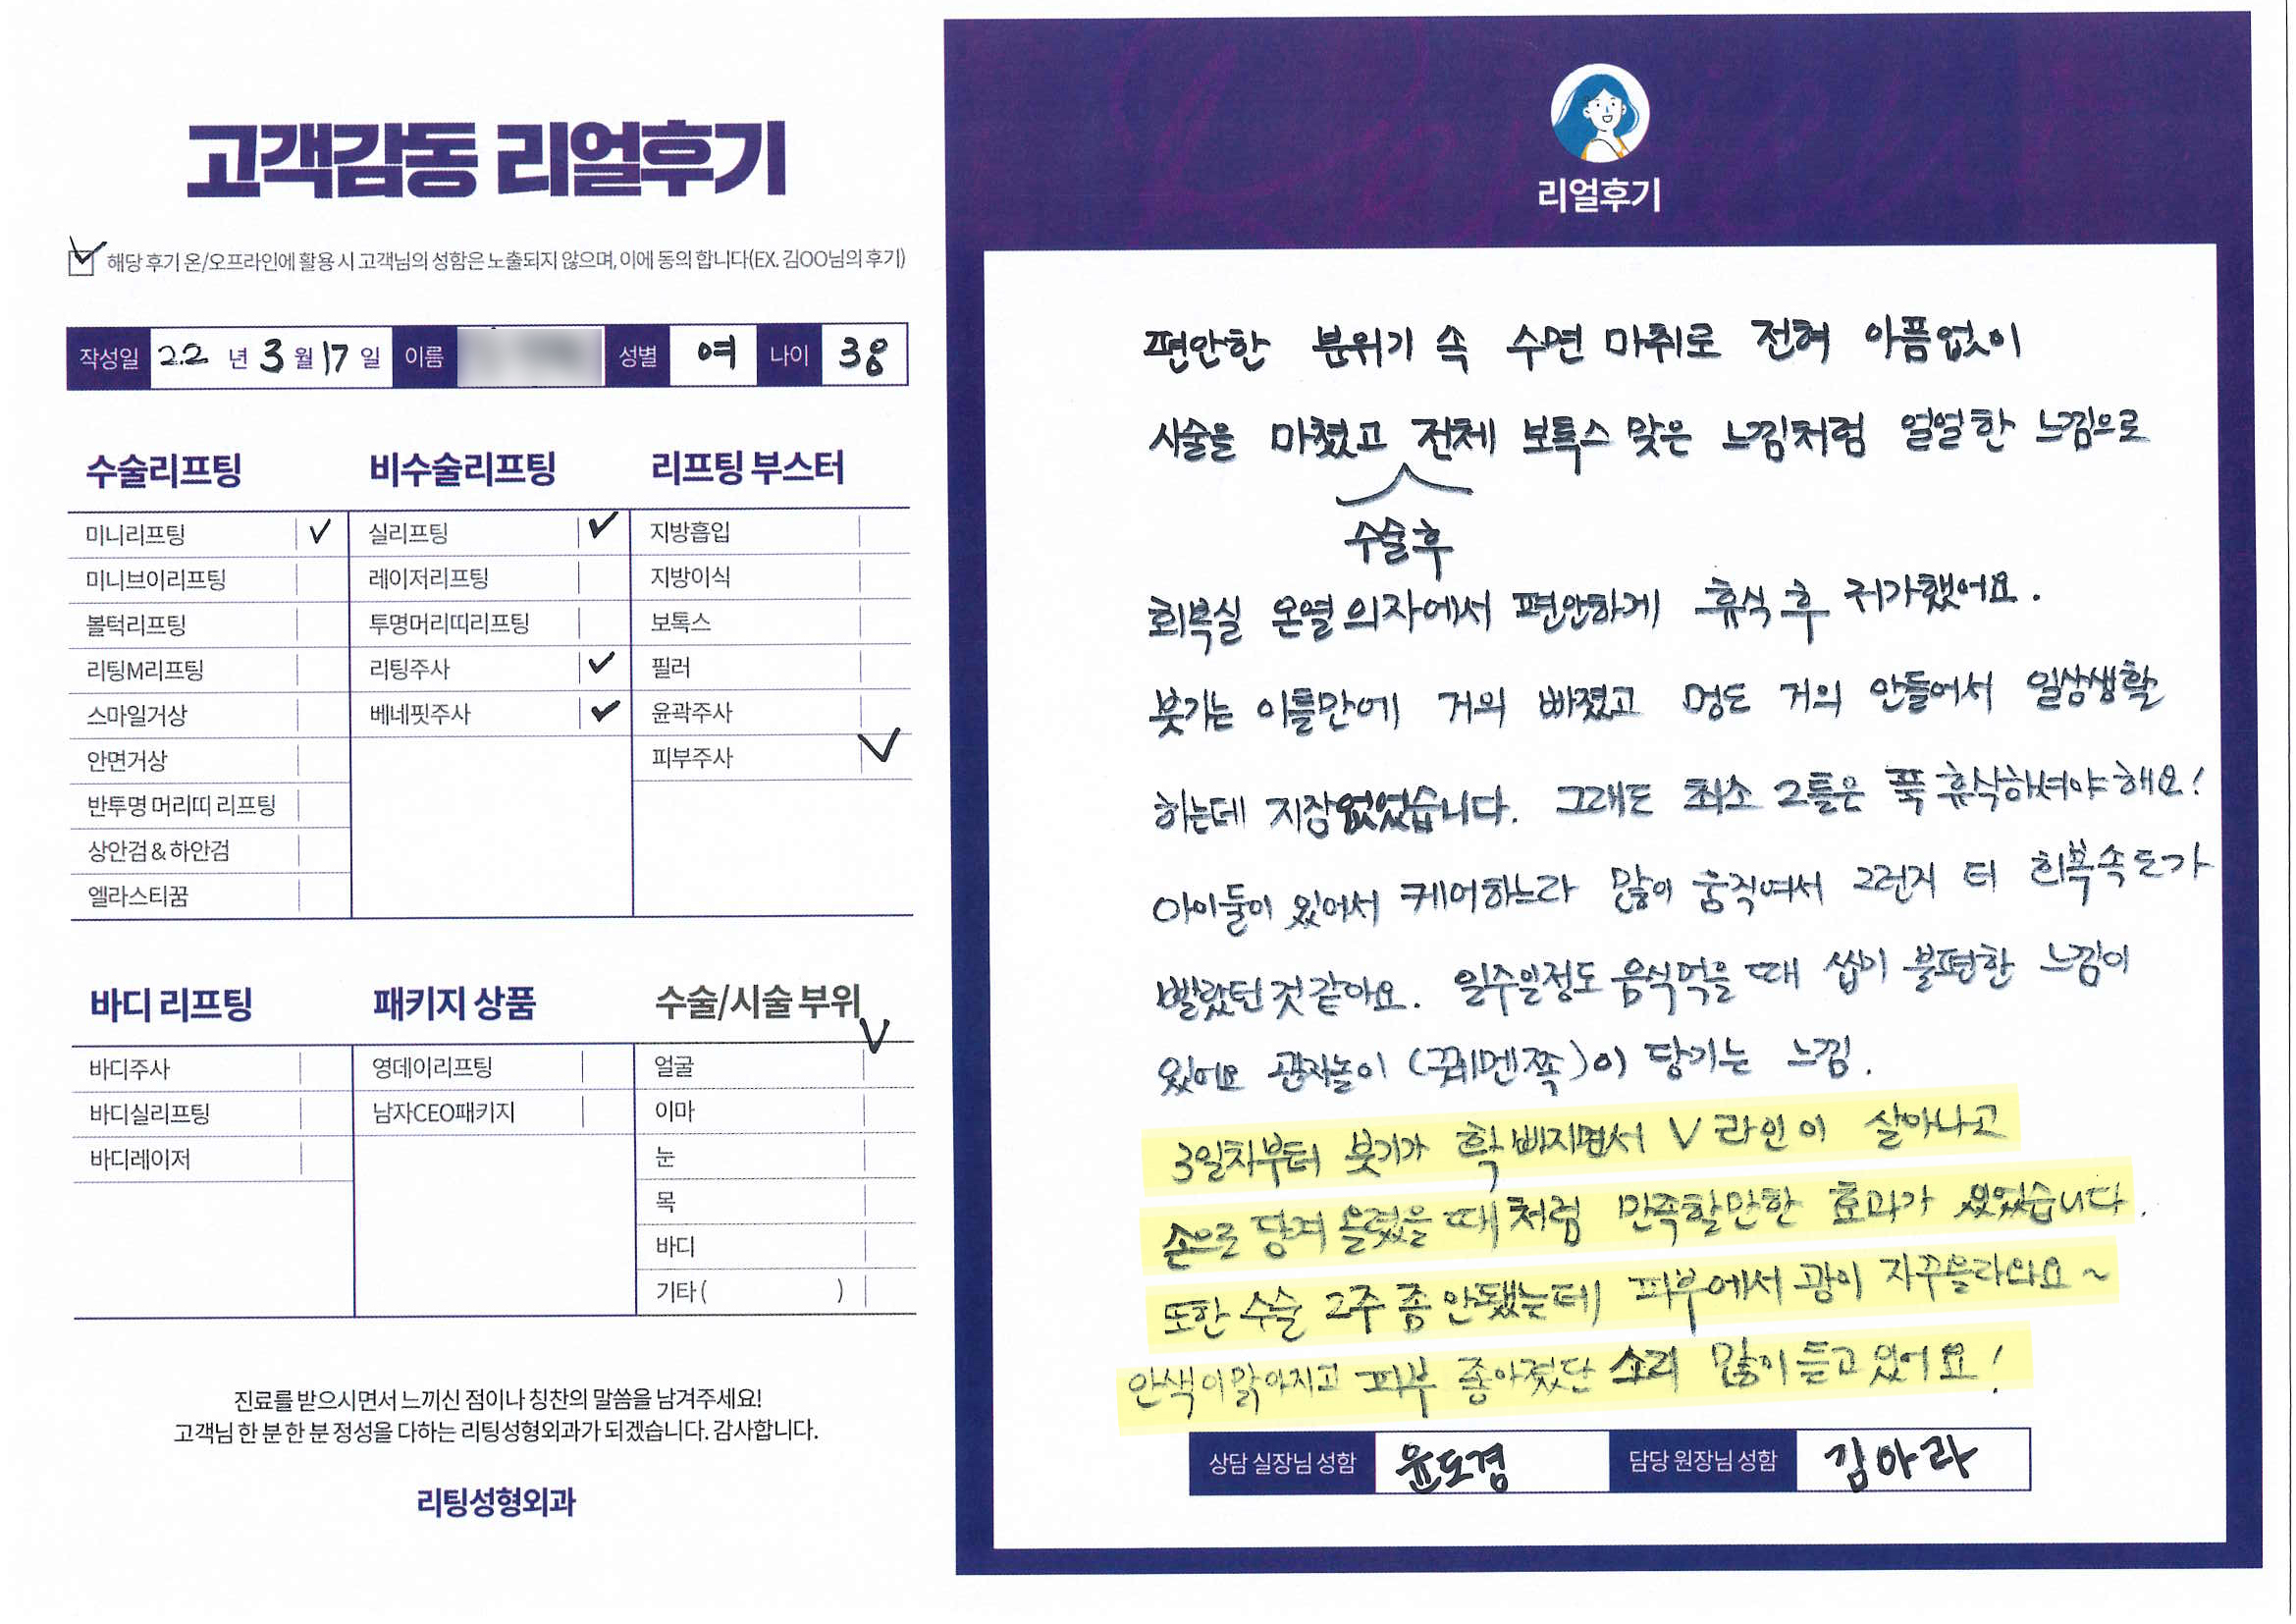 고객감동 리얼후기
해당 후기 온/오프라인에 활용 시 고객님의 성함은 노출되지 않으며, 이에 동의 합니다(EX. 김OO님의 후기)
작성일 22 년 3 월 17 일 이름 성별 여 나이 38
수술리프팅
미니리프팅 ✓
미니브이리프팅
볼턱리프팅
리팅M리프팅
스마일거상
안면거상
반투명 머리띠 리프팅
상안검 & 하안검
엘라스티꿈
비수술리프팅
실리프팅 ✓
레이저리프팅
투명머리띠리프팅
리팅주사 ✓
베네핏주사 ✓
리프팅 부스터
지방흡입
지방이식
보톡스
필러
윤곽주사
피부주사 ✓
바디 리프팅
바디주사
바디실리프팅
바디레이저
패키지 상품
영데이리프팅
남자CEO패키지
수술/시술 부위
얼굴 ✓
이마
눈
목
바디
기타 ( )
진료를 받으시면서 느끼신 점이나 칭찬의 말씀을 남겨주세요!
고객님 한 분 한 분 정성을 다하는 리팅성형외과가 되겠습니다. 감사합니다.
리팅성형외과
리얼후기
편안한 분위기 속 수면 마취로 전혀 아픔없이
시술을 마쳤고 전체 보톡스 맞은 느낌처럼 얼얼한 느낌으로
수술후
회복실 온열의자에서 편안하게 휴식 후 귀가했어요.
붓기는 이틀만에 거의 빠졌고 멍도 거의 안들어서 일상생활
하는데 지장없었습니다. 그래도 최소 2틀은 푹 휴식하셔야해요!
아이둘이 있어서 케어하느라 많이 움직여서 그런지 더 회복속도가
빨랐던것같아요. 일주일정도 음식먹을 때 씹이 불편한 느낌이
있어요 관자놀이 (꿰멘쪽)이 당기는 느낌.
3일차부터 붓기가 확 빠지면서 V라인이 살아나고
손으로 당겨 올렸을 때처럼 만족할만한 효과가 있었습니다.
또한 수술 2주 좀 안됐는데 피부에서 광이 자꾸올라와요~
안색이맑아지고 피부 좋아졌단 소리 많이듣고있어요!
상담 실장님 성함 윤도경 담당 원장님 성함 김아라